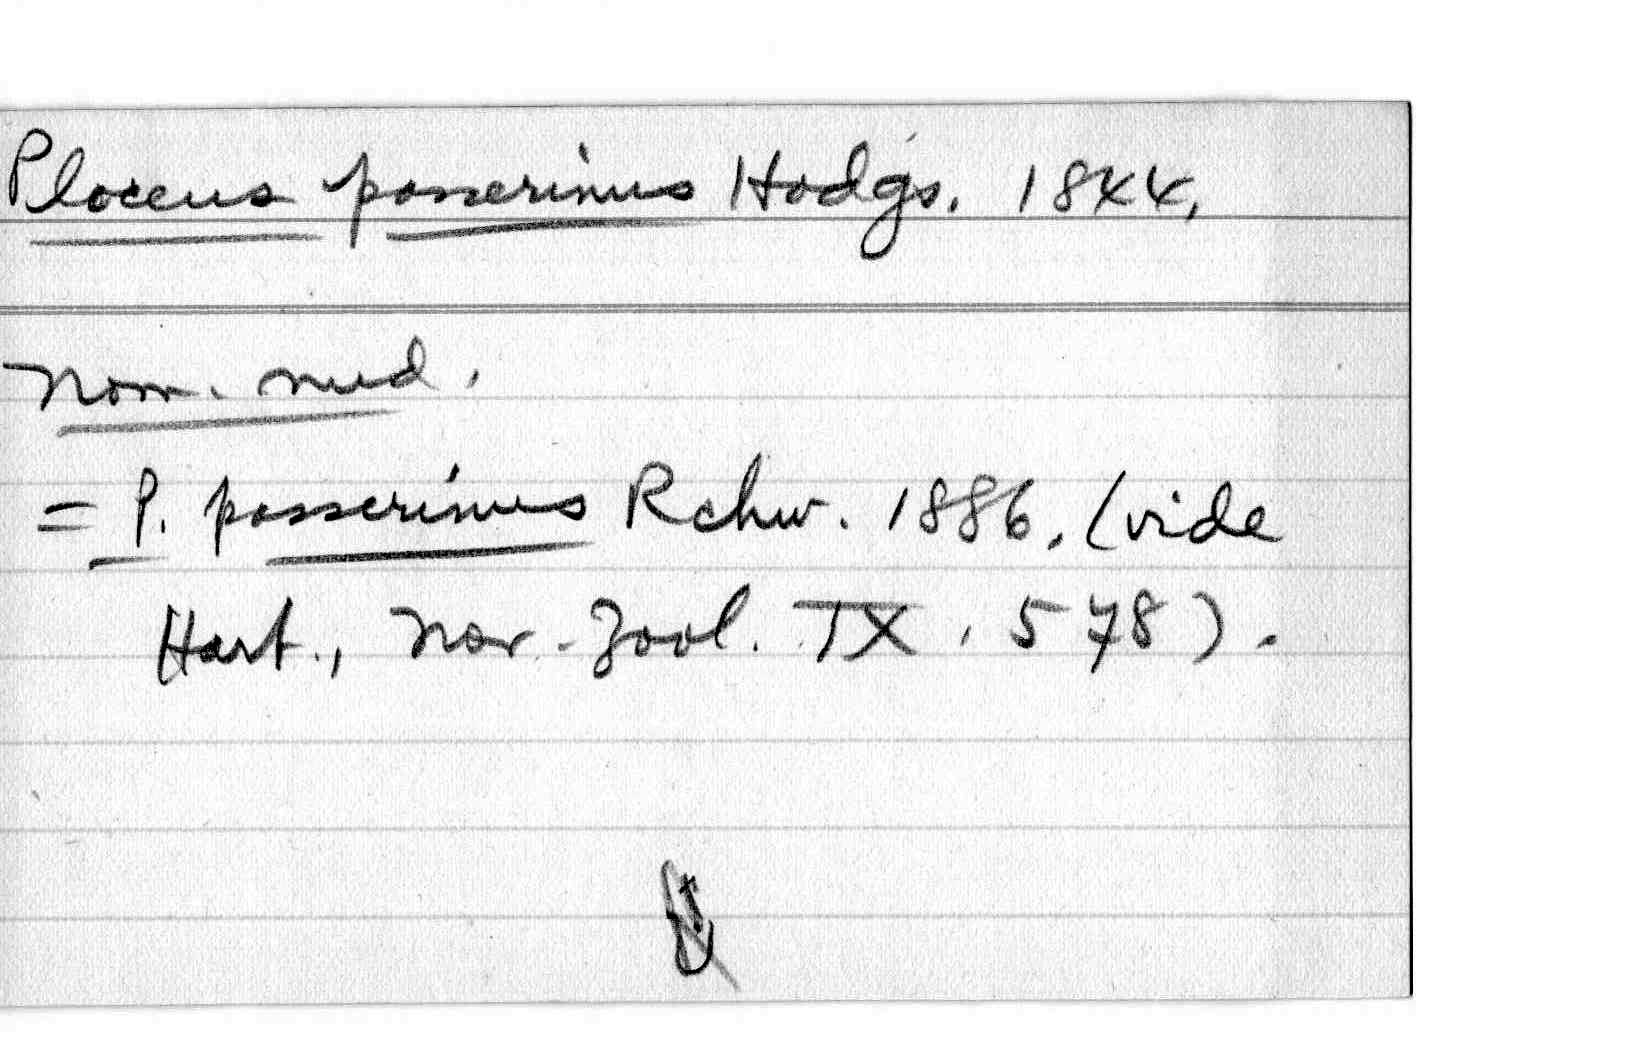 Ploceus passerinus Hodgs. 1844,
Nom. nud.
= P. passerinus Rchw. 1886. (vide
Hart., Nov. Zool. IX. 578).